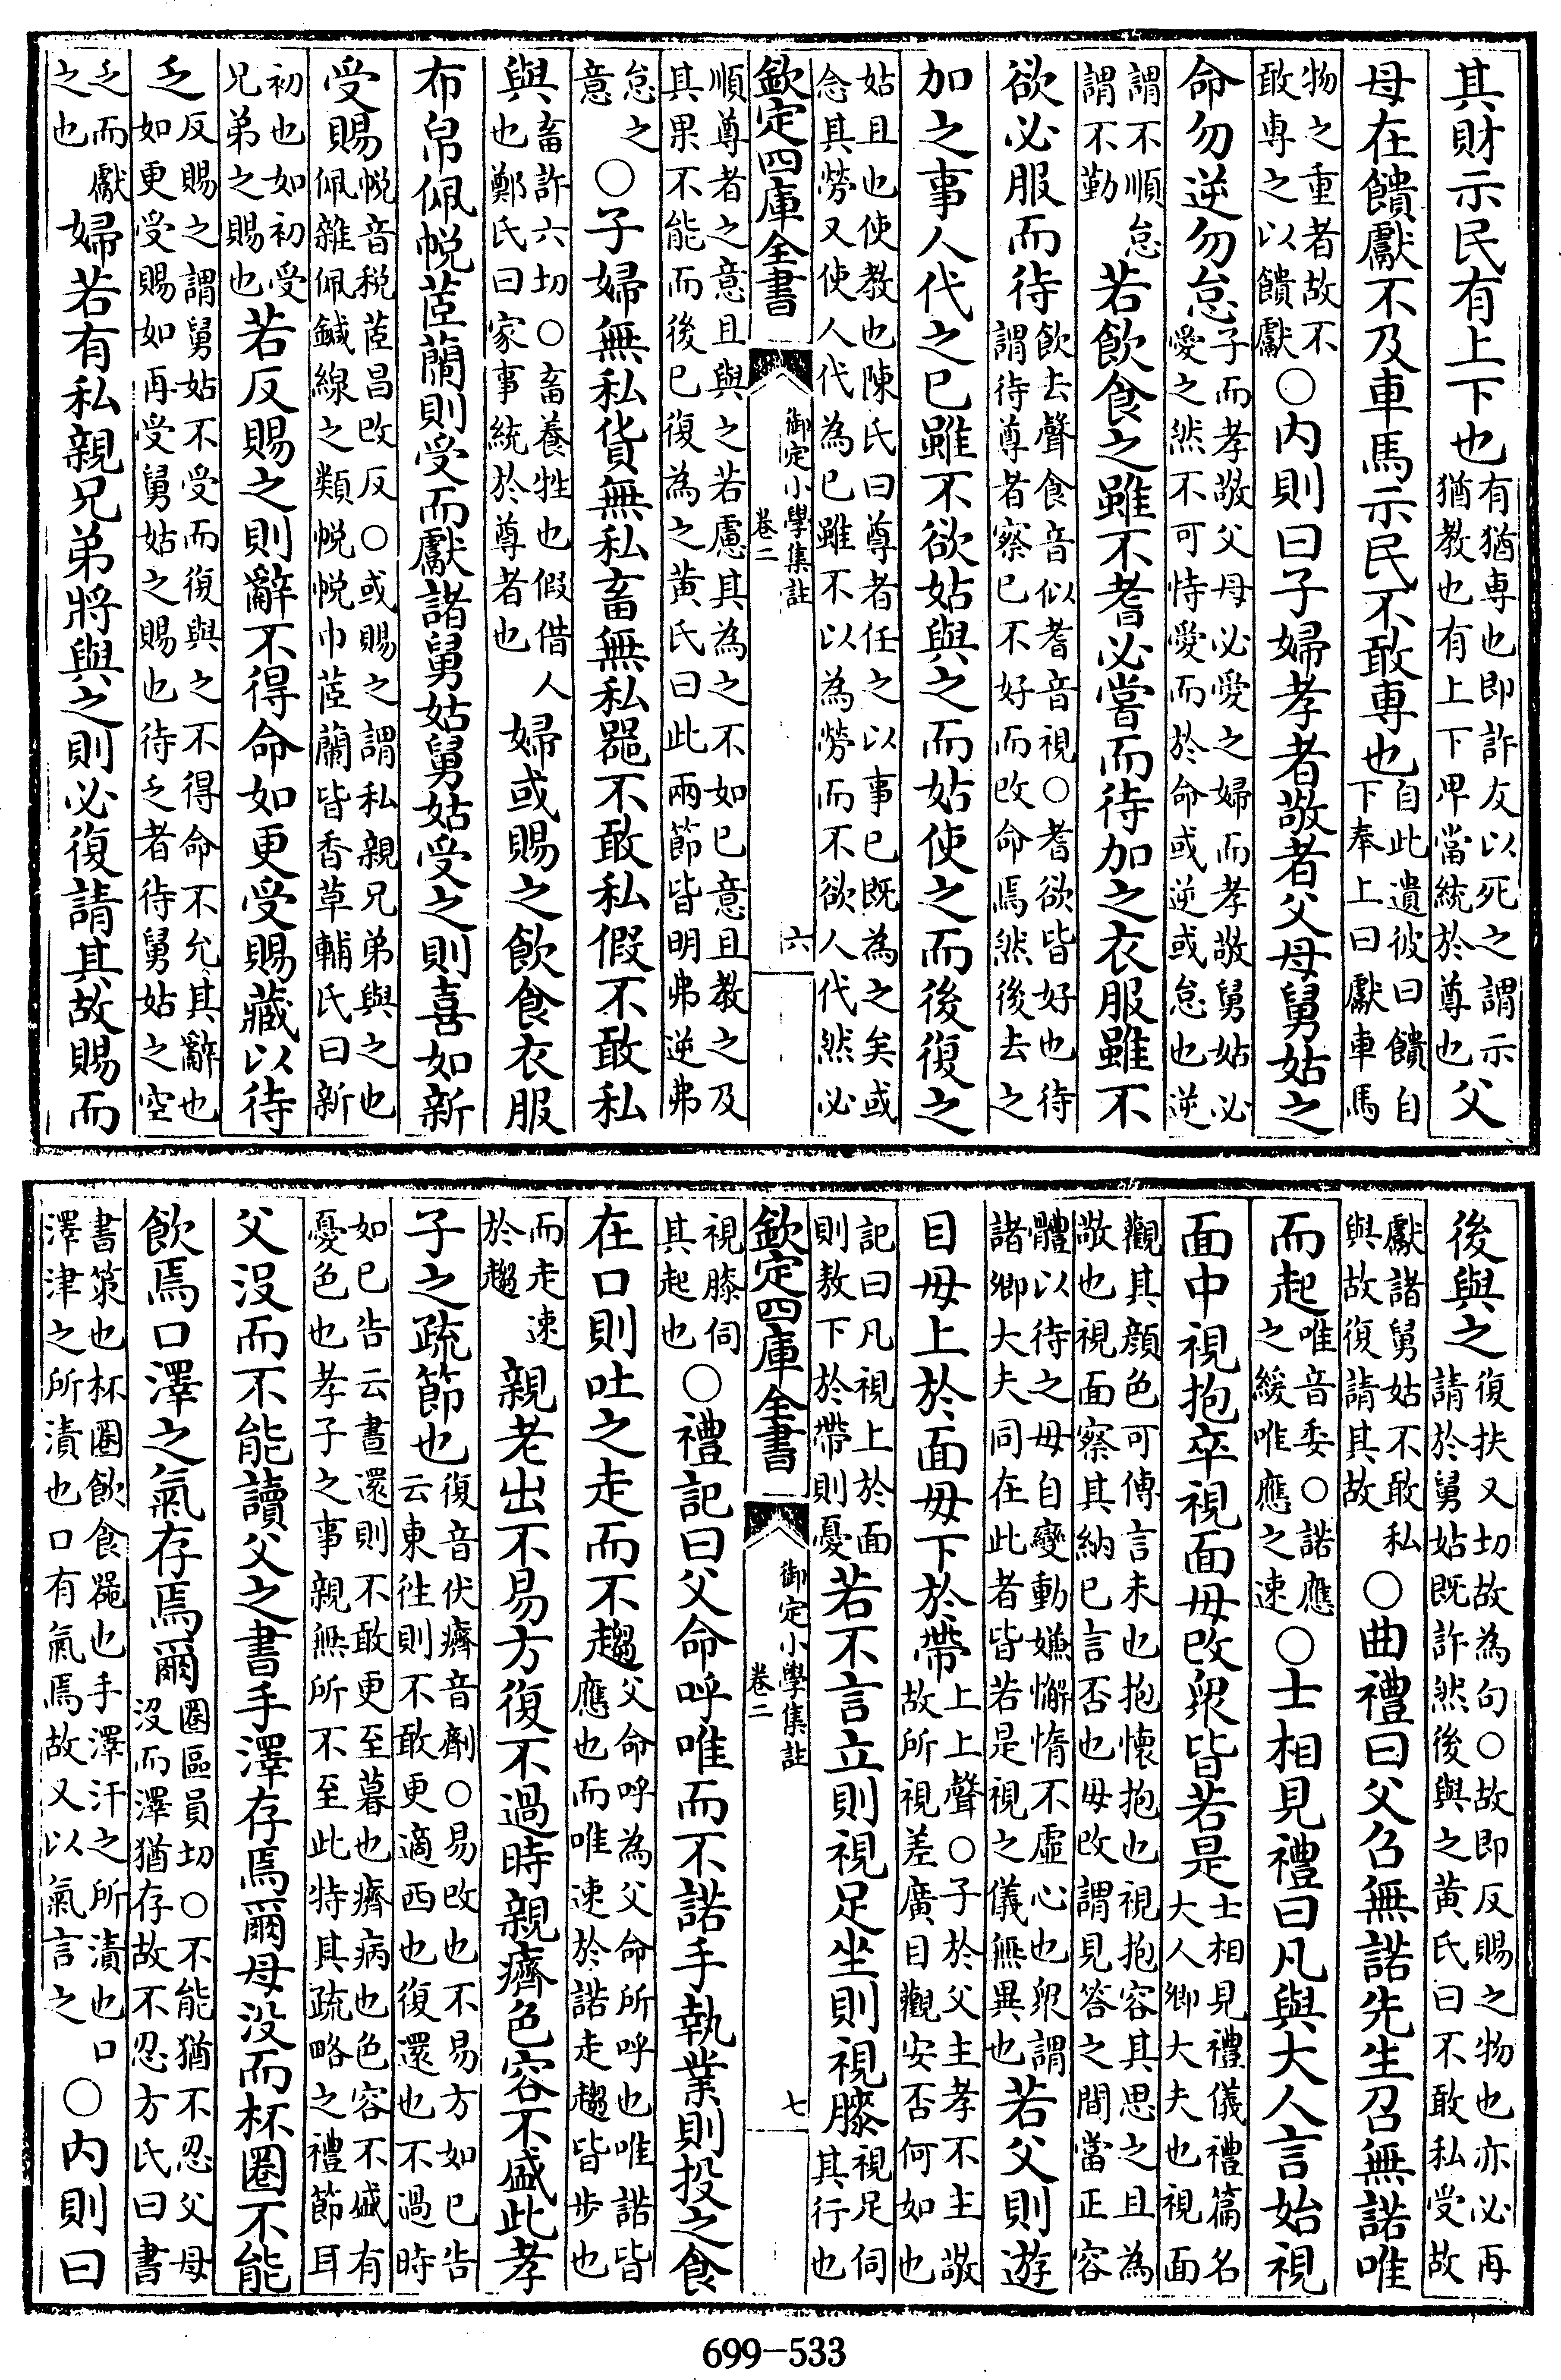 其財示民有上下也有猶專也即許友以死之謂示猶教也有上下卑當統於尊也父
母在饋獻不及車馬示民不敢專也自此遺彼曰饋自下奉上曰獻車馬
物之重者故不敢專之以饋獻○內則曰子婦孝者敬者父母舅姑之
命勿逆勿怠子而孝敬父母必愛之婦而孝敬舅姑必愛之然不可恃愛而於命或逆或怠也逆
謂不順怠謂不勤若飲食之雖不耆必嘗而待加之衣服雖不
欲必服而待飲去聲食音似耆音視○耆欲皆好也待謂待尊者察已不好而改命焉然後去之
加之事人代之已雖不欲姑與之而姑使之而後復之
姑且也使教也陳氏曰尊者任之以事已既為之矣或念其勞又使人代為已雖不以為勞而不欲人代然必
欽定四庫全書 御定小學集註 卷二 六
順尊者之意且與之若慮其為之不如已意且教之及其果不能而後已復為之黄氏曰此兩節皆明弗逆弗
怠之意○子婦無私貨無私畜無私器不敢私假不敢私
與畜許六切○畜養牲也假借人也鄭氏曰家事統於尊者也婦或賜之飲食衣服
布帛佩帨茝蘭則受而獻諸舅姑舅姑受之則喜如新
受賜帨音稅茝昌改反○或賜之謂私親兄弟與之也佩雜佩鍼線之類帨帨巾茝蘭皆香草輔氏曰新
初也如初受兄弟之賜也若反賜之則辭不得命如更受賜藏以待
乏反賜之謂舅姑不受而復與之不得命不允其辭也如更受賜如再受舅姑之賜也待乏者待舅姑之空
乏而獻之也婦若有私親兄弟將與之則必復請其故賜而
後與之復扶又切故為句○故即反賜之物也亦必再請於舅姑既許然後與之黄氏曰不敢私受故
獻諸舅姑不敢私與故復請其故○曲禮曰父召無諾先生召無諾唯
而起唯音委○諾應之緩唯應之速○士相見禮曰凡與大人言始視
面中視抱卒視面毋改衆皆若是士相見禮儀禮篇名大人卿大夫也視面
觀其顔色可傳言未也抱懷抱也視抱容其思之且為敬也視面察其納已言否也毋改謂見答之間當正容
體以待之毋自變動嫌懈惰不虛心也衆謂諸卿大夫同在此者皆若是視之儀無異也若父則遊
目毋上於面毋下於帶上上聲○子於父主孝不主敬故所視差廣目觀安否何如也
記曰凡視上於面則敖下於帶則憂若不言立則視足坐則視膝視足伺其行也
欽定四庫全書 御定小學集註 卷二 七
視膝伺其起也○禮記曰父命呼唯而不諾手執業則投之食
在口則吐之走而不趨父命呼為父命所呼也唯諾皆應也而唯速於諾走趨皆步也
而走速於趨親老出不易方復不過時親癠色容不盛此孝
子之疏節也復音伏癠音劑○易改也不易方如已告云東往則不敢更適西也復還也不過時
如已告云晝還則不敢更至暮也癠病也色容不盛有憂色也孝子之事親無所不至此特其疏略之禮節耳
父沒而不能讀父之書手澤存焉爾母沒而杯圈不能
飲焉口澤之氣存焉爾圈區員切○不能猶不忍父母沒而澤猶存故不忍方氏曰書
書策也杯圈飲食器也手澤汗之所漬也口澤津之所漬也口有氣焉故又以氣言之○內則曰
699-533